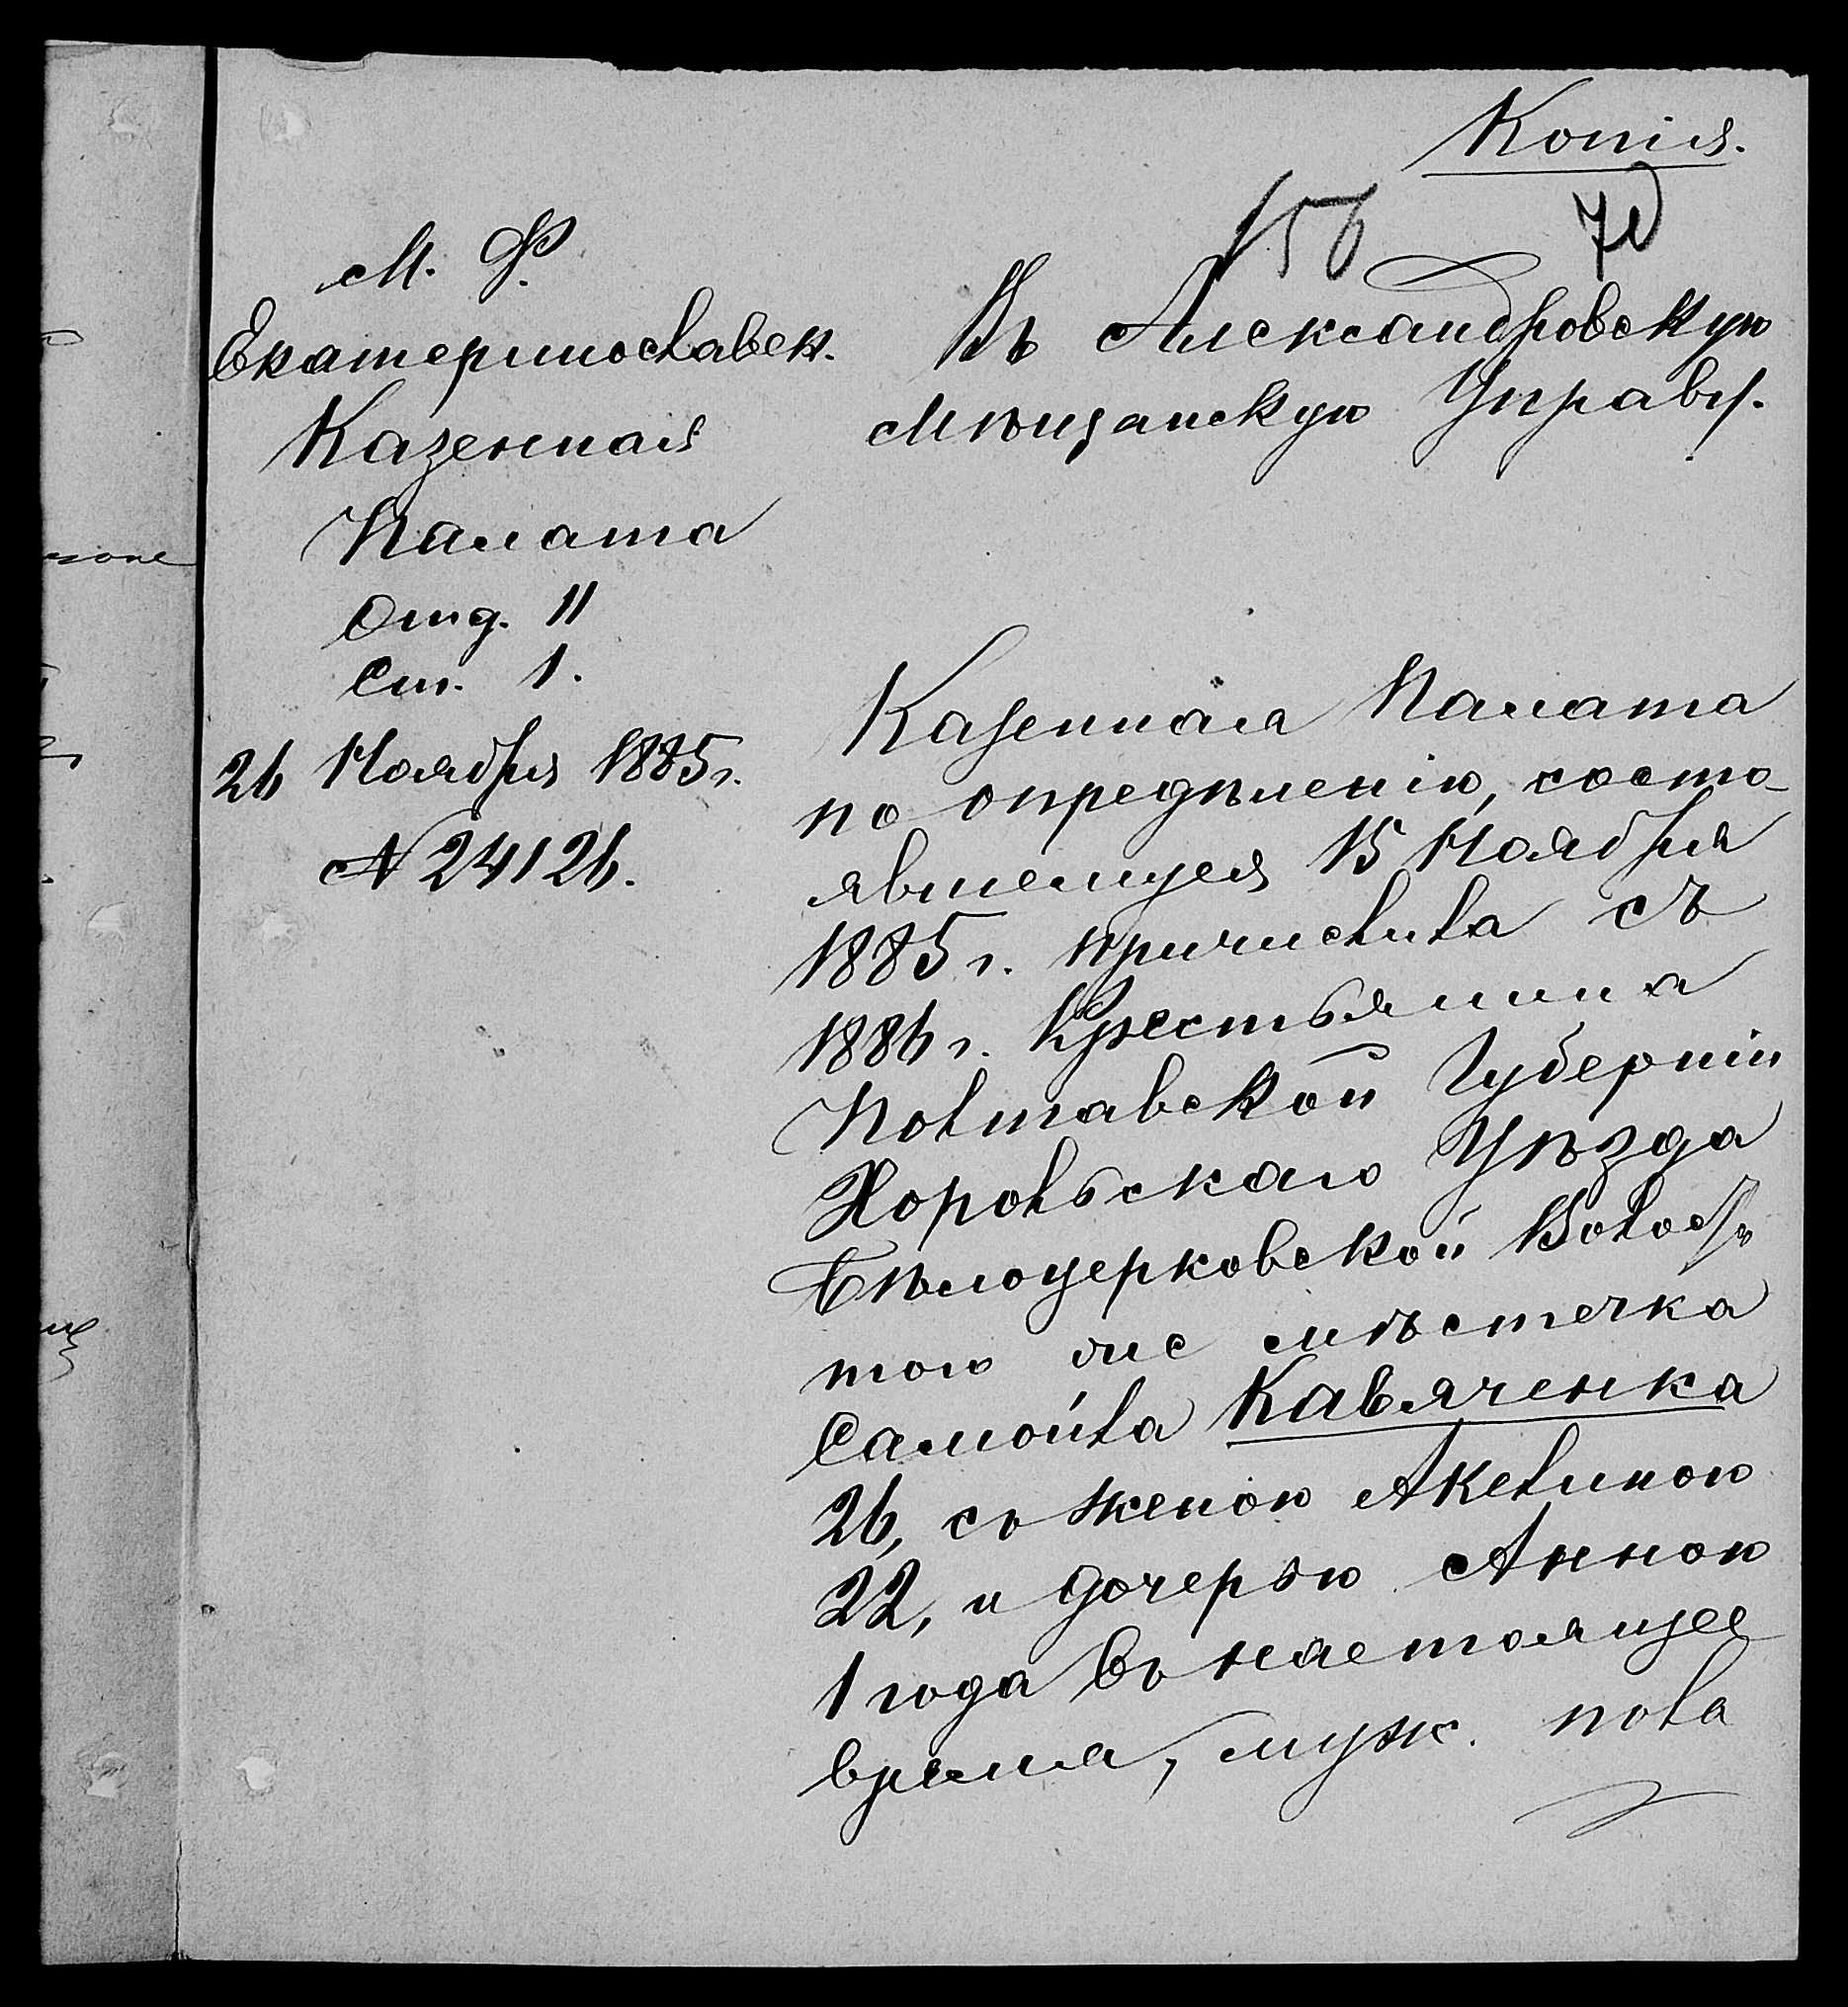 Копія.
156 70
М. Ф.
Екатеринославск.
Казенная
Палата
Отд. II
Ст. 1.
26 Ноября 1885 г.
№ 24126.
Въ Александровскую
Мѣщанскую Управу.
Казенная Палата
по опредѣленію, состо-
явшемуся 15 Ноября
1885 г. причислила съ
1886 г. Крестьянина
Полтавской Губерніи
Хорольскаго Уѣзда
Бѣлоцерковской Волости
того же мѣстечка
Самойла Кавяченка
26, съ женою Акелиною
22, и дочерью Анною
1 года въ настоящее
время, муж. пола